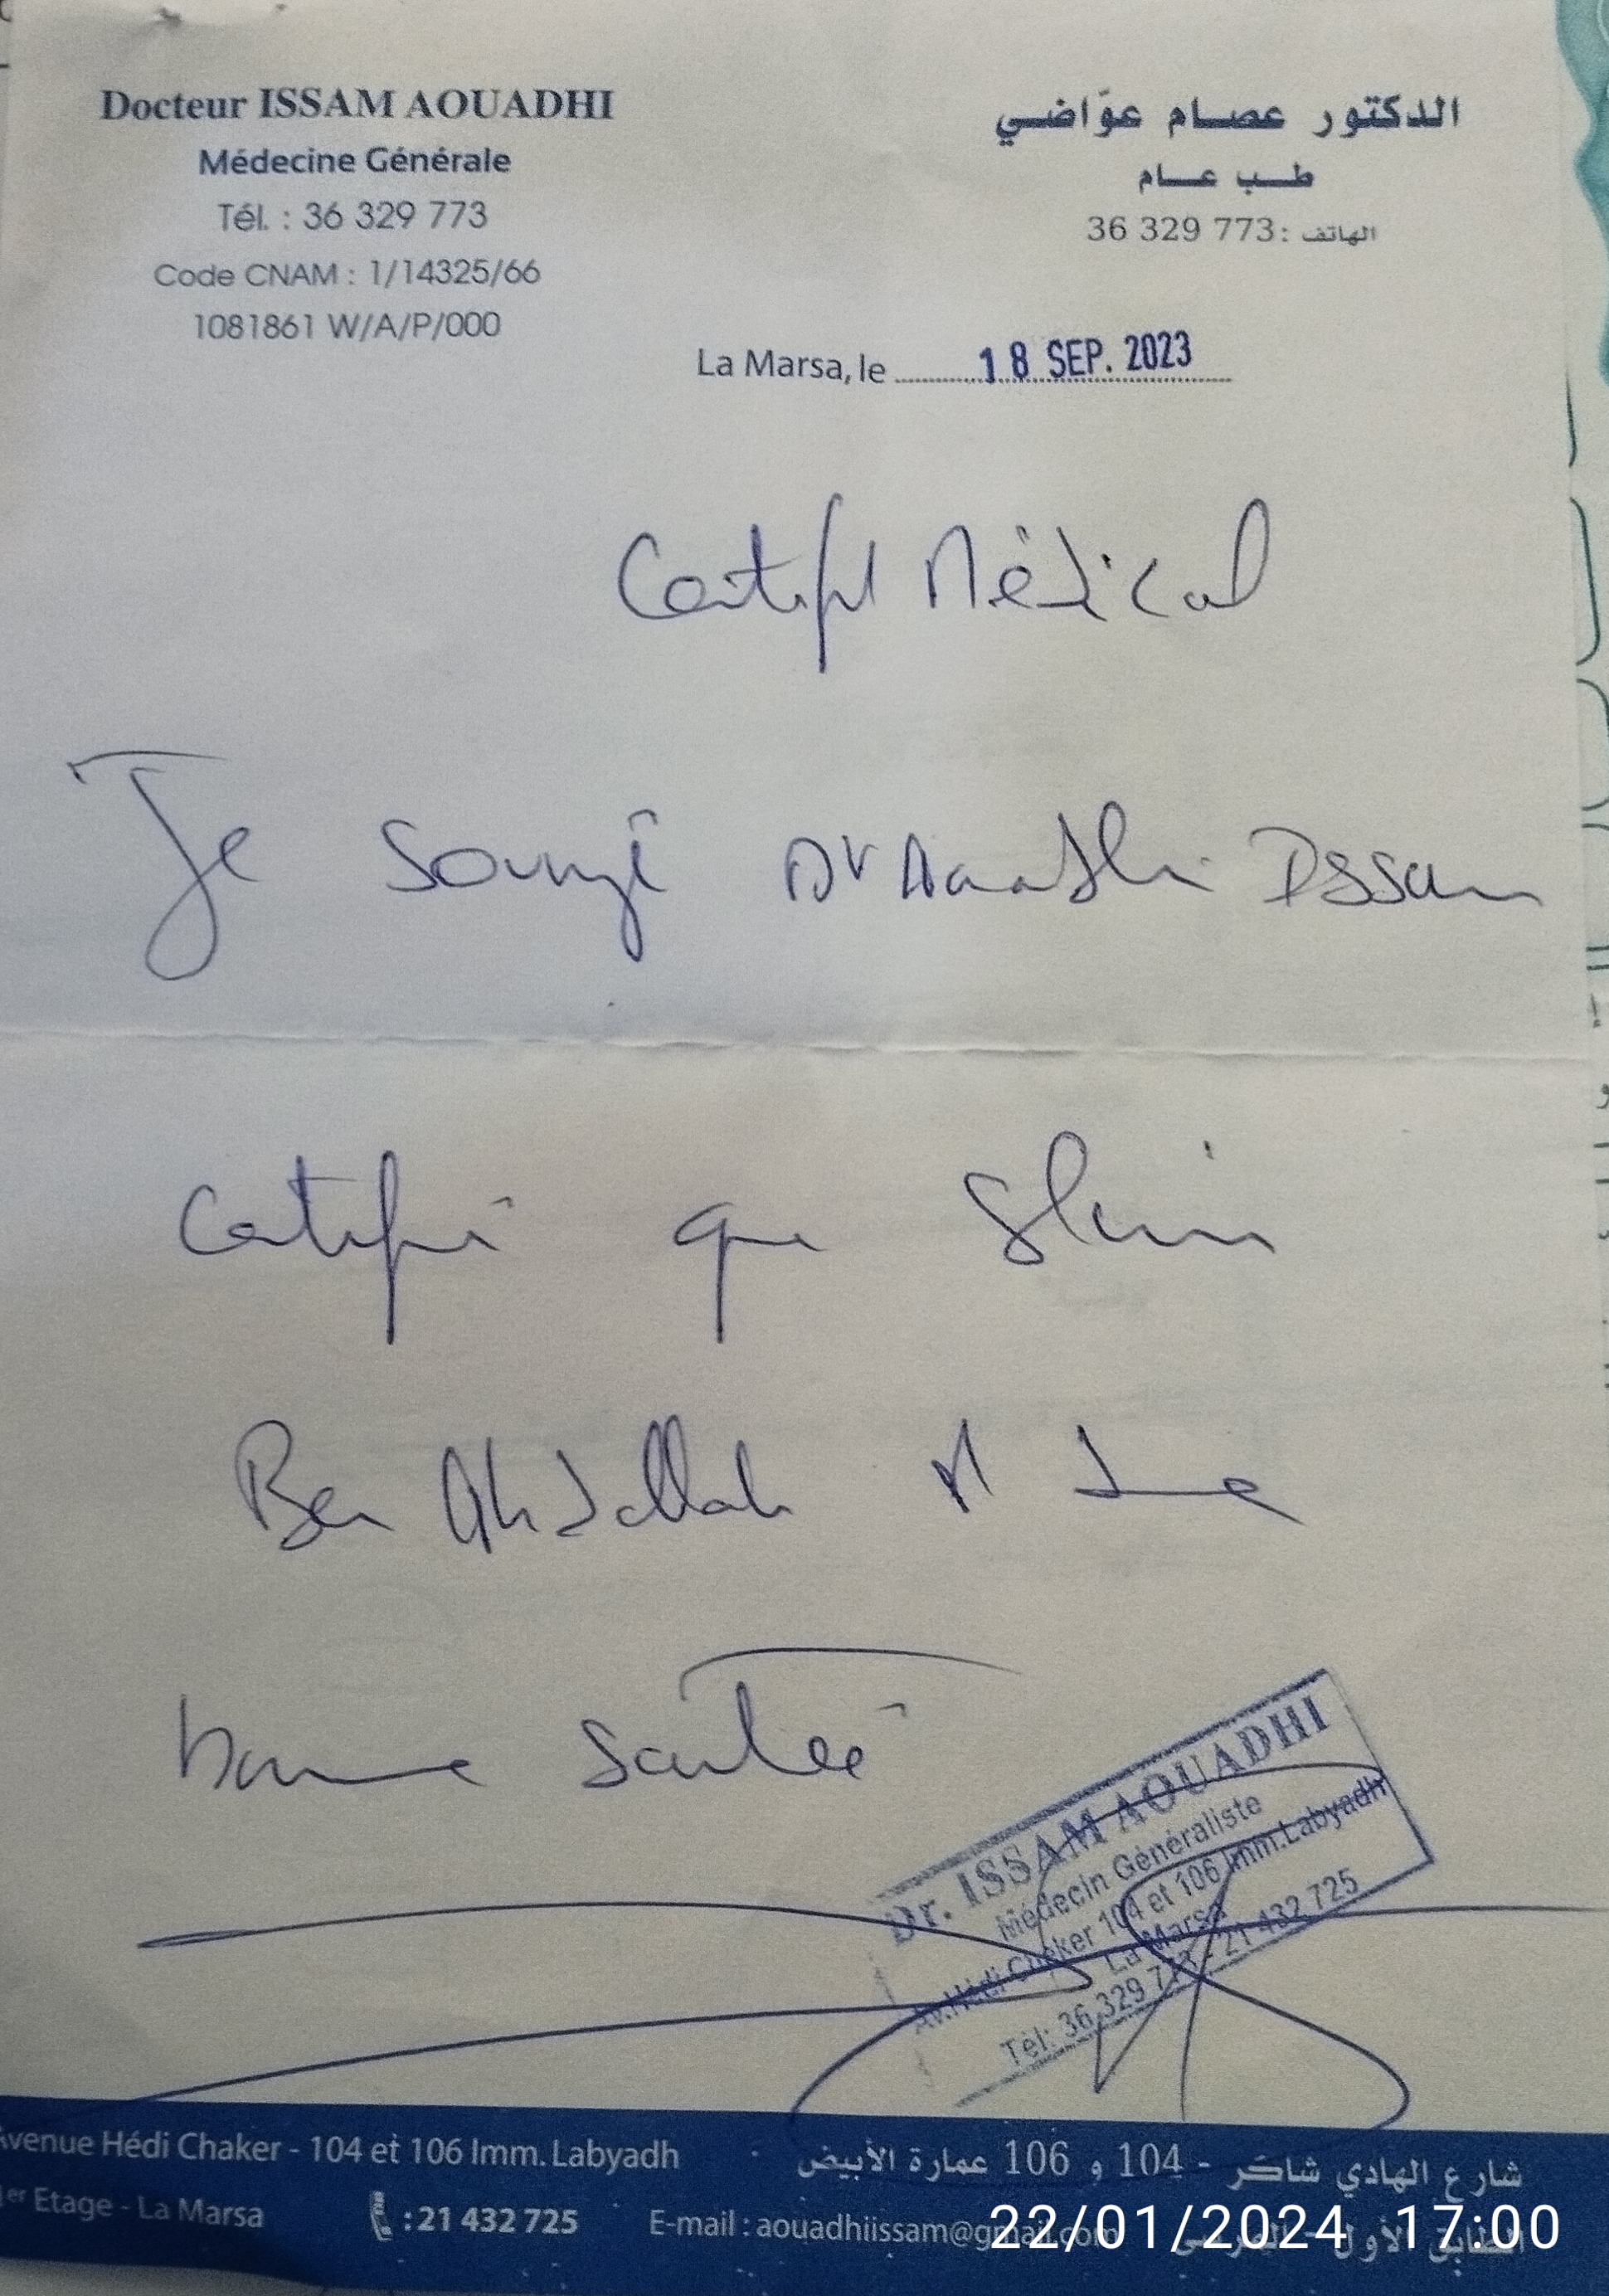 Docteur ISSAM AOUADHI
Médecine Générale
Tél. : 36 329 773
Code CNAM : 1/14325/66
1081861 W/A/P/000
الدكتور عصام عوّاضي
طب عام
الهاتف : 36 329 773
La Marsa, le 18 SEP. 2023
Certifict Médical
Je sousigé Dr Aouadhi Issam
certifié que Slim
Ben Abdallah
bonne santeé
Dr. ISSAM AOUADHI
Médecin Généraliste
Av. Hédi Chaker 104 et 106 Imm. Labyadh
La Marsa
Tél: 36 329 773 - 21 432 725
Avenue Hédi Chaker - 104 et 106 Imm. Labyadh
1er Etage - La Marsa
: 21 432 725
E-mail : aouadhiissam@gmail.com
شارع الهادي شاكر - 104 و 106 عمارة الأبيض
الطابق الأول - المرسى
22/01/2024 17:00